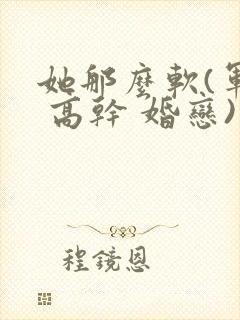 她那麼軟(軍
高幹 婚戀)
程鏡恩